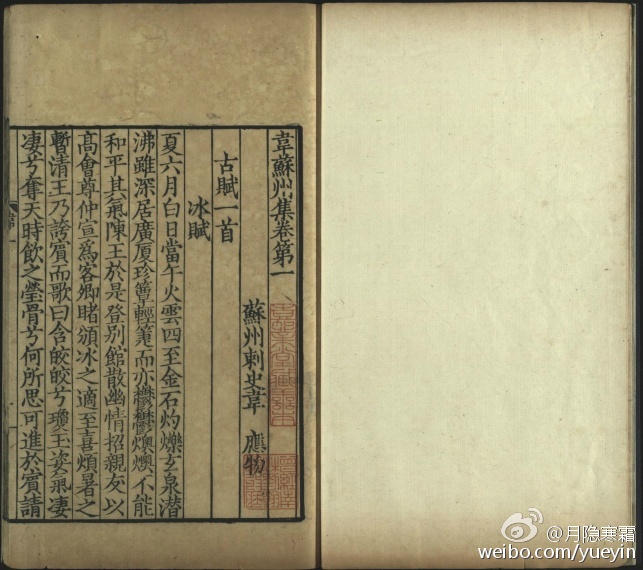 韋蘇州集卷第一
蘇州刺史韋　應物
古賦一首
冰賦
夏六月白日當午火雲四至金石灼爍玄泉潛
沸雖深居廣厦珍簟輕箑而亦鬱鬱燠燠不能
和平其氣陳王於是登別館散幽情招親友以
高會尊仲宣爲客卿睹頒冰之適至喜煩暑之
暫清王乃誇賓而歌曰含皎皎兮瓊玉姿氣凄
凄兮奪天時飲之瑩骨兮何所思可進於賓請
韋一
@月隐寒霜
weibo.com/yueyin